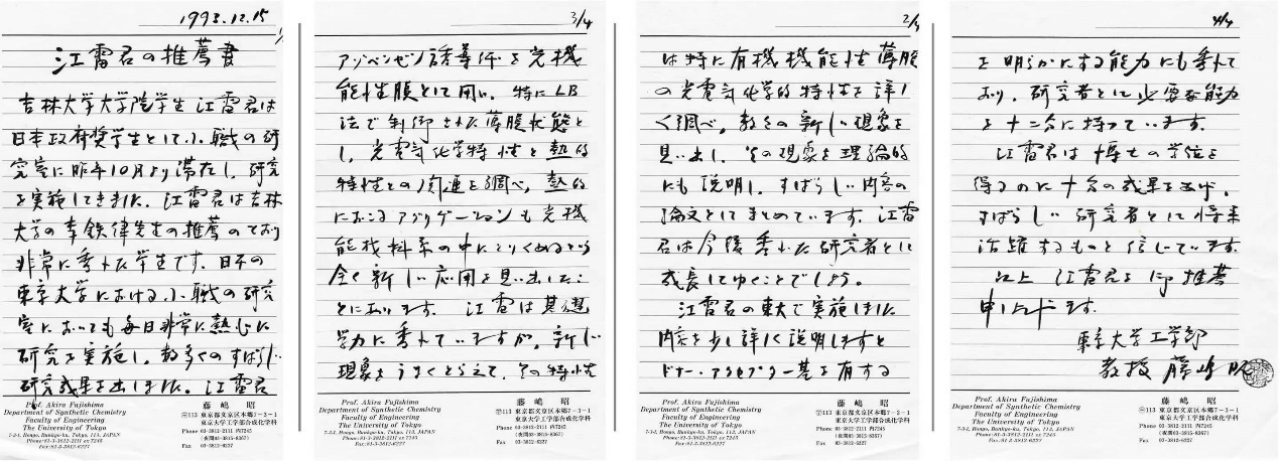 1993.12.15
江雷君の推薦書
吉林大学大学院学生 江雷君は
日本政府奨学生として、小職の研
究室に昨年10月より滞在し、研究
を実施してきました。江雷君は吉林
大学の李鉄津先生の推薦のとおり
非常に秀れた学生です。日本の
東京大学における、小職の研究
室においても毎日非常に熱心に
研究を実施し、数多くのすばらしい
研究成果を出しました。江雷君
Prof. Akira Fujishima
Department of Synthetic Chemistry
Faculty of Engineering
The University of Tokyo
7-3-1, Hongo, Bunkyo-ku, Tokyo, 113, JAPAN
Phone:03-3812-2111 ex 7245
Fax:03-3812-6227
藤嶋 昭
〒113 東京都文京区本郷7-3-1
東京大学工学部合成化学科
Phone 03-3812-2111 内7245
(夜間03-3815-0367)
Fax 03-3812-6227
3/4
アゾベンゼン誘導体を光機
能性膜として用い、特にLB
法で制御された薄膜状態と
し、光電気化学特性と熱的
特性との関連を調べ、熱的
におこるアグリゲーションも光機
能材料系の中にとりくめるという
全く新しい応用を見い出したこ
とにあります。江雷は基礎
学力に秀れていますが、新しい
現象をうまくとらえて、その特性
Prof. Akira Fujishima
Department of Synthetic Chemistry
Faculty of Engineering
The University of Tokyo
7-3-1, Hongo, Bunkyo-ku, Tokyo, 113, JAPAN
Phone:03-3812-2111 ex 7245
Fax:03-3812-6227
藤嶋 昭
〒113 東京都文京区本郷7-3-1
東京大学工学部合成化学科
Phone 03-3812-2111 内7245
(夜間03-3815-0367)
Fax 03-3812-6227
2/4
は特に有機機能性薄膜
の光電気化学的特性を詳し
く調べ、数々の新しい現象を
見い出し、その現象を理論的
にも説明し、すばらしい内容の
論文としてまとめています。江雷
君は今後秀れた研究者として
成長してゆくことでしょう。
江雷君の東大で実施しました
内容を少し詳しく説明しますと
ドナー・アクセプター基を有する
Prof. Akira Fujishima
Department of Synthetic Chemistry
Faculty of Engineering
The University of Tokyo
7-3-1, Hongo, Bunkyo-ku, Tokyo, 113, JAPAN
Phone:03-3812-2111 ex 7245
Fax:03-3812-6227
藤嶋 昭
〒113 東京都文京区本郷7-3-1
東京大学工学部合成化学科
Phone 03-3812-2111 内7245
(夜間03-3815-0367)
Fax 03-3812-6227
4/4
を明らかにする能力にも秀れて
おり、研究者として必要な能力
を十二分に持っています。
江雷君は博士の学位を
得るのに十分の成果をあげ、
すばらしい研究者として将来
活躍するものと信じています。
以上 江雷君を御推薦
申し上げます。
東京大学工学部
教授 藤嶋 昭
Prof. Akira Fujishima
Department of Synthetic Chemistry
Faculty of Engineering
The University of Tokyo
7-3-1, Hongo, Bunkyo-ku, Tokyo, 113, JAPAN
Phone:03-3812-2111 ex 7245
Fax:03-3812-6227
藤嶋 昭
〒113 東京都文京区本郷7-3-1
東京大学工学部合成化学科
Phone 03-3812-2111 内7245
(夜間03-3815-0367)
Fax 03-3812-6227